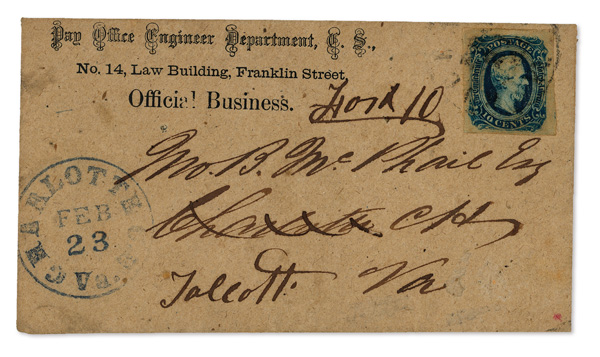 Pay Office Engineer Department, C. S.,
No. 14, Law Building, Franklin Street,
Official Business.
Ford 10
POSTAGE
TEN CENTS
Jno. B. Mc Phail Esq
Charlotte C H
Talcott Va
CHARLOTTE
FEB
23
VA